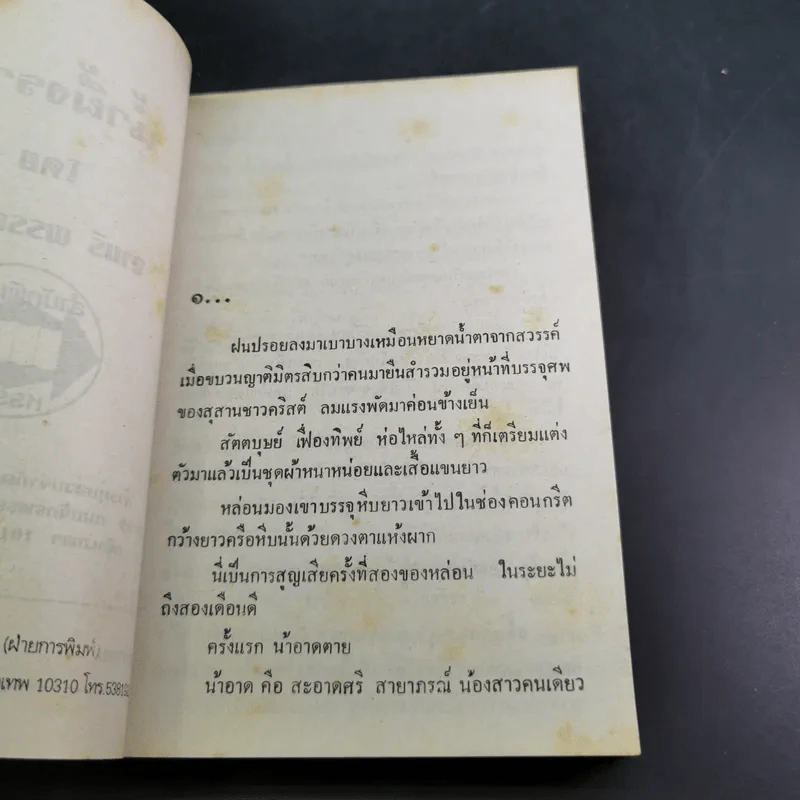 (ฝ่ายการพิมพ์)
เทพ 10310 โทร.5381
๑...
ฝนปรอยลงมาเบาบางเหมือนหยาดน้ำตาจากสวรรค์
เมื่อขบวนญาติมิตรสิบกว่าคนมายืนสำรวมอยู่หน้าที่บรรจุศพ
ของสุสานชาวคริสต์ ลมแรงพัดมาค่อนข้างเย็น
สัตตบุษย์ เฟื่องทิพย์ ห่อไหล่ทั้ง ๆ ที่ก็เตรียมแต่ง
ตัวมาแล้วเป็นชุดผ้าหนาหน่อยและเสื้อแขนยาว
หล่อนมองเขาบรรจุหีบยาวเข้าไปในช่องคอนกรีต
กว้างยาวครือหีบนั้นด้วยดวงตาแห้งผาก
นี่เป็นการสูญเสียครั้งที่สองของหล่อน ในระยะไม่
ถึงสองเดือนดี
ครั้งแรก น้าอาดตาย
น้าอาด คือ สะอาดศรี สายาภรณ์ น้องสาวคนเดียว